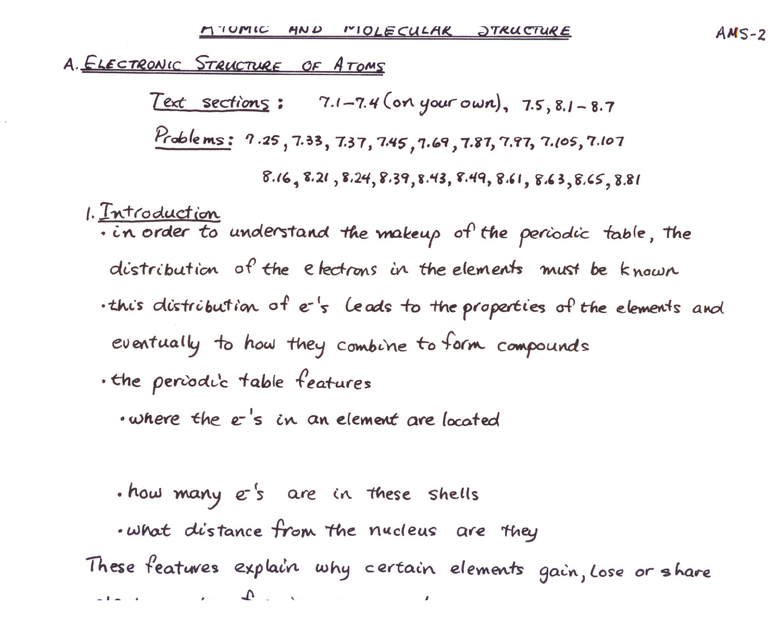 ATOMIC AND MOLECULAR STRUCTURE
AMS-2
A. ELECTRONIC STRUCTURE OF ATOMS
Text sections: 7.1-7.4 (on your own), 7.5, 8.1-8.7
Problems: 7.25, 7.33, 7.37, 7.45, 7.69, 7.87, 7.97, 7.105, 7.107
8.16, 8.21, 8.24, 8.39, 8.43, 8.49, 8.61, 8.63, 8.65, 8.81
1. Introduction
• in order to understand the makeup of the periodic table, the
distribution of the electrons in the elements must be known
• this distribution of e-'s leads to the properties of the elements and
eventually to how they combine to form compounds
• the periodic table features
• where the e-'s in an element are located
• how many e-'s are in these shells
• what distance from the nucleus are they
These features explain why certain elements gain, lose or share